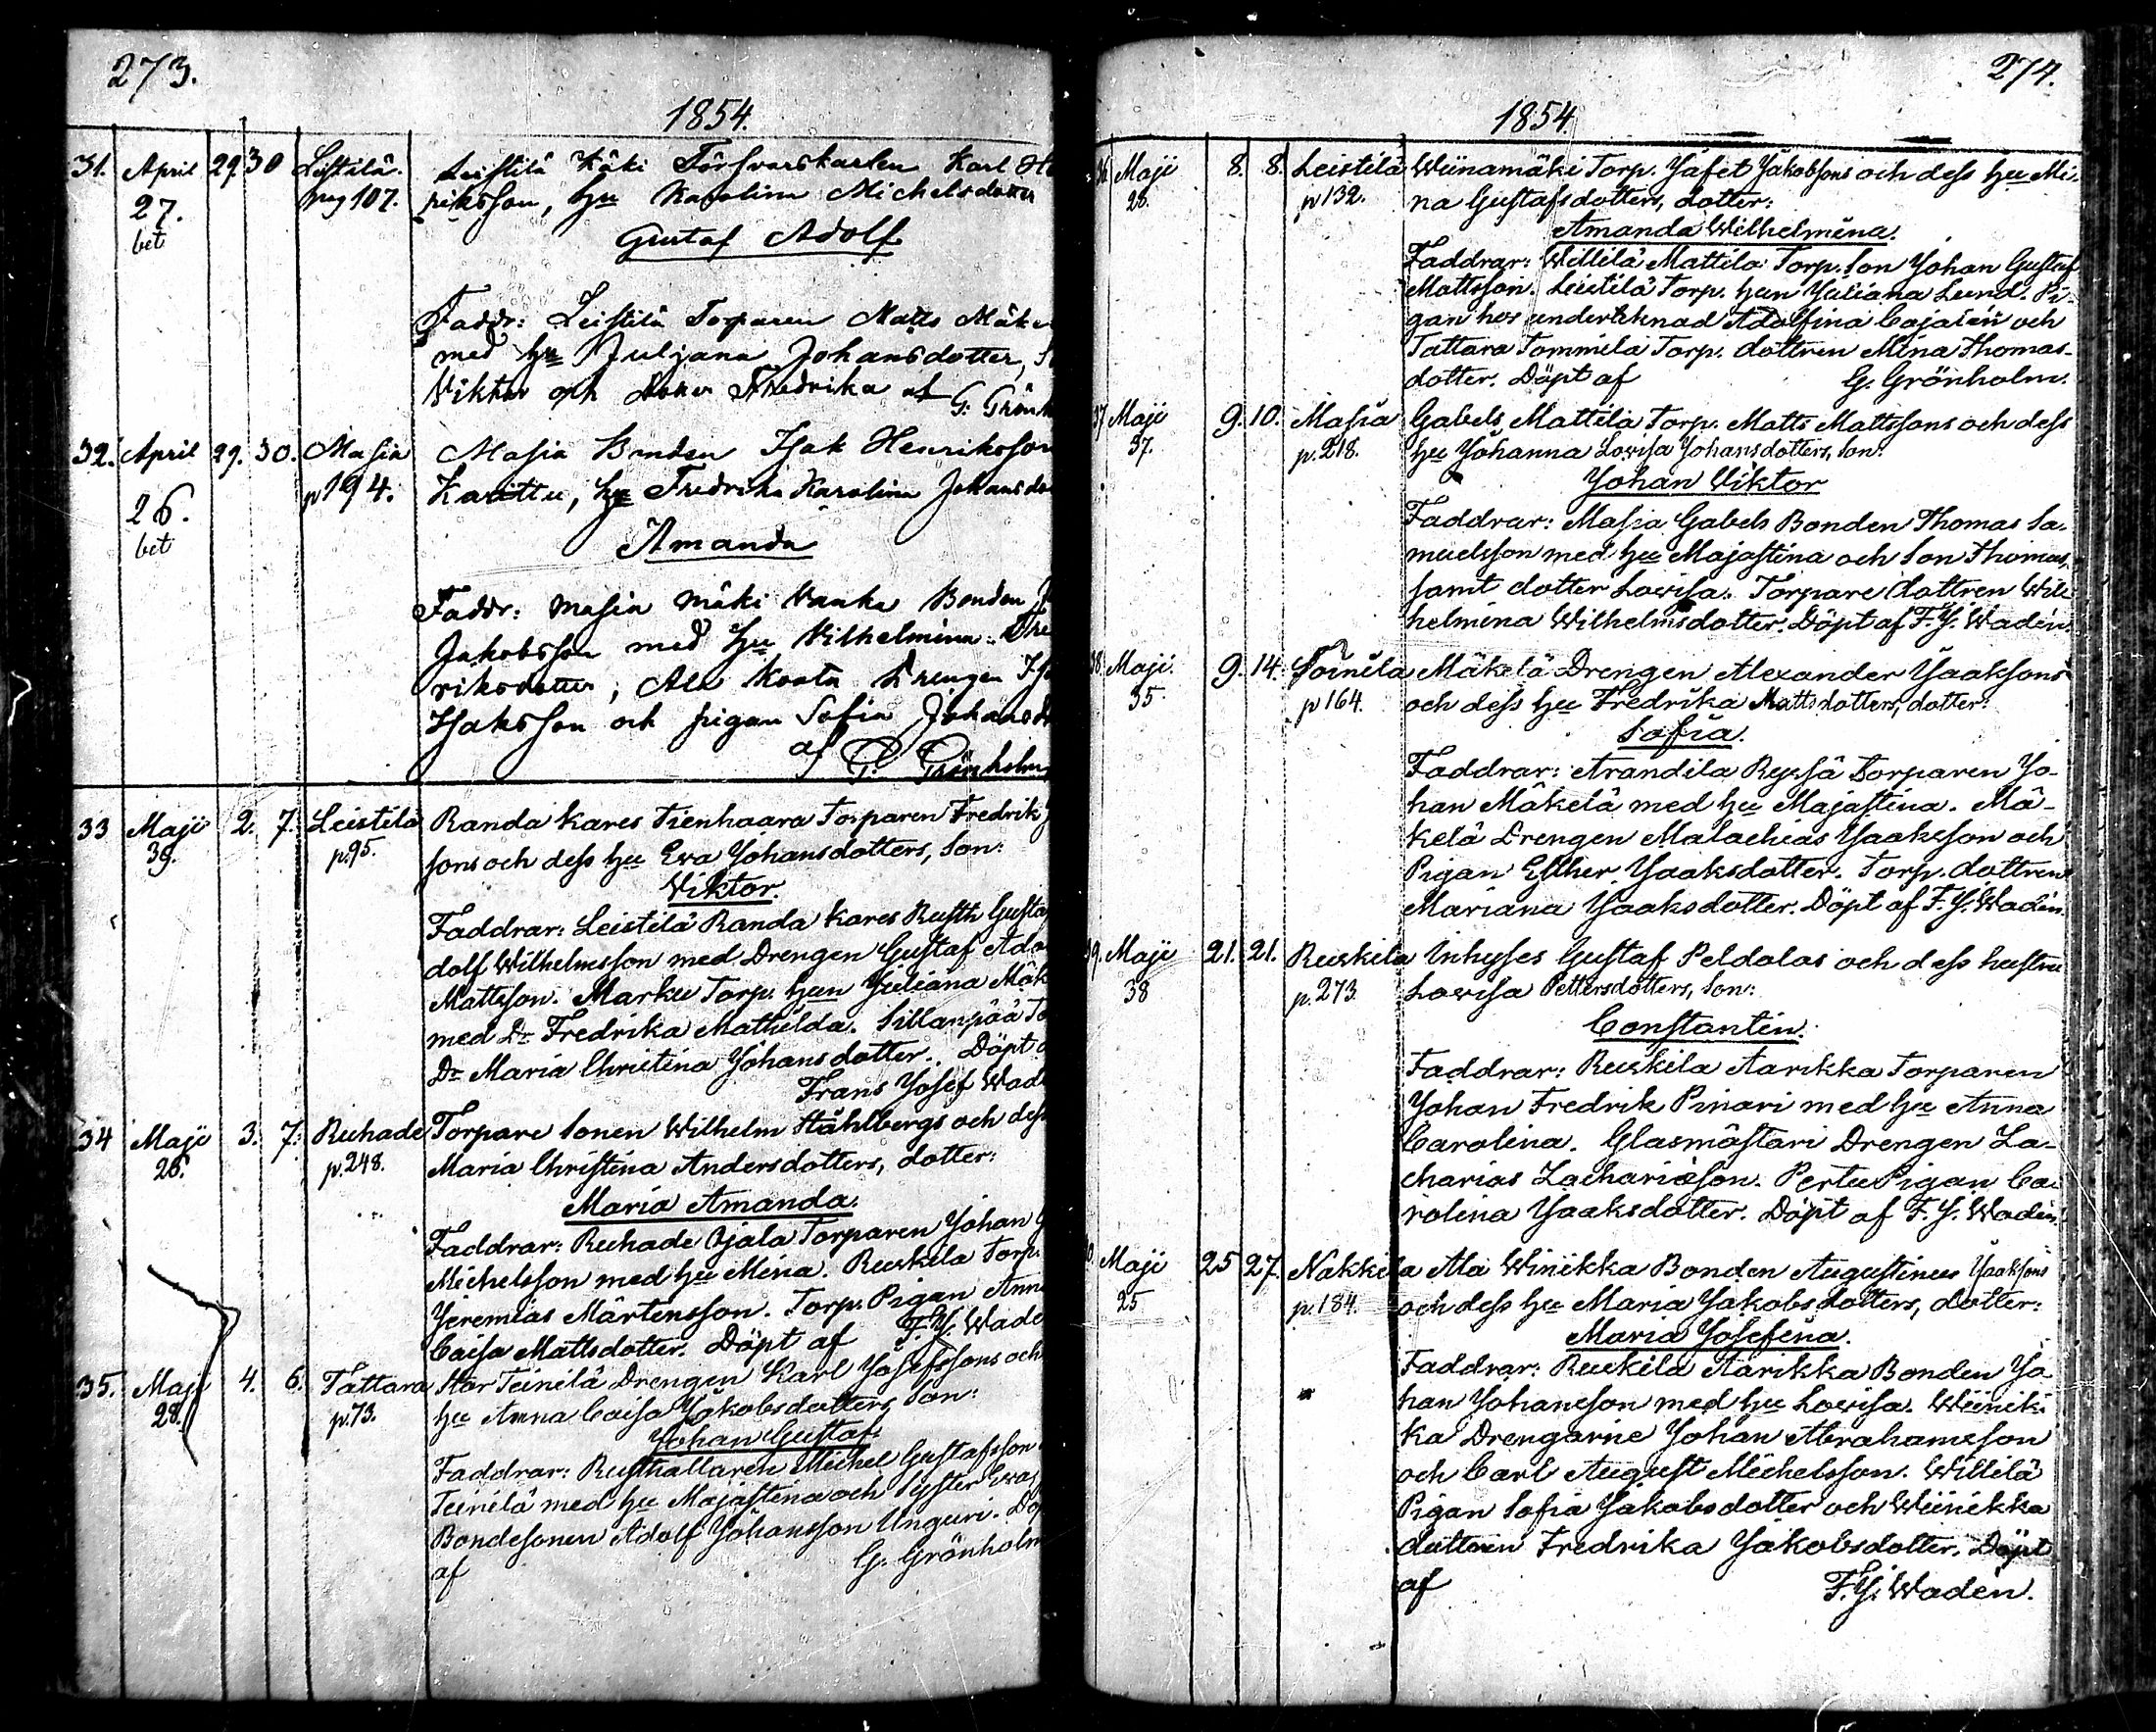 273.
1854.
31. April 29. 30 Leistilä. Leistilä Käki Försvarskarlen Karl
27. pag 107. riksson, hu Karolina Michelsdotter
bet Gustaf Adolf
Faddr: Leistilä Torparen Matts
med hu Juljana Johansdotter,
Viktor och Fredrika af G.
32. April 29. 30. Masia Masia Bonden Isak Henriksson
26. p 194. Karittu, hu Fredrika Karolina
bet Amanda
Faddr: Masia Mäki Bonden
Jakobsson med hu Vilhelmina
riksdotter, Ala Koota Drengen
Isaksson och pigan Sofia
af G. Grönholm
33 Maji 2. 7. Leistilä Randa Kares Tienhaara Torparen Fredrik
39. p.95. sons och dess hu Ewa Johansdotters, Son:
Viktor.
Faddrar: Leistilä Randa Kares Rusth
dolf Wilhelmsson med Drengen Gustaf
Mattsson. Marku Torp. hun Juliana
med Dr Fredrika Mathilda. Sillanpää
Dr Maria Christina Johansdotter. Döpt
Frans Josef
34 Maji 3. 7. Ruhade Torpare Sonen Wilhelm Ståhlbergs och dess
26. p.248. Maria Christina Andersdotters, dotter:
Maria Amanda.
Faddrar: Ruhade Ojala Torparen Johan
Michelsson med hu Mina. Ruskila Torp.
Jeremias Mårtensson. Torp. Pigan
Caisa Mattsdotter. Döpt af F. J.
35. Maji 4. 6. Tattara Stor Teinilä Drengen Karl Josefssons och
28. p.73. hu Anna Caisa Jakobsdotters, Son:
Johan Gustaf.
Faddrar: Rusthållaren Michel Gustafsson
Teinilä med hu Majastina och Syster
Bondesonen Adolf Johansson Unguri.
af G. Grönholm
274.
1854
Maji 8. 8. Leistilä Wiinamäki Torp. Jafet Jakobssons och dess hu Mi-
28. p 132. na Gustafsdotters, dotter:
Amanda Wilhelmina.
Faddrar: Willilä Mattila Torp. Son Johan Gustaf
Mattsson. Leistilä Torp. hun Juliana Lund. Pi-
gan hos underteknad Adolfina Cajalén och
Tattara Tommila Torp. dottren Mina Thomas-
dotter. Döpt af G. Grönholm.
37 Maji 9. 10. Masia Gabels, Mattila Torp. Matts Mattssons och dess
37. p.218. hu Johanna Lovisa Johansdotters, Son:
Johan Viktor
Faddrar: Masia Gabels Bonden Thomas Sa-
muelsson med hu Majastina och Son Thomas,
samt dotter Lovisa. Torpare dottren Wil-
helmina Wilhelmsdotter. Döpt af F. J. Wadén.
Maji. 9. 14. Soinila Mäkelä Drengen Alexander Jaaksons
35. p 164. och dess hu Fredrika Mattsdotters, dotter:
Sofia.
Faddrar: Arandila Ryssä Torparen Jo-
han Mäkelä med hu Majastina. Mä-
kelä Drengen Malachias Jaaksson och
Pigan Esther Jaaksdotter. Torp. dottren
Mariana Jaaksdotter. Döpt af F. J. Wadén.
Maji 21. 21. Ruskila Inhyses Gustaf Peldolas och dess hustru
38 p.273. Lovisa Pettersdotters, Son:
Constantin.
Faddrar: Ruskila Aarikka Torparen
Johan Fredrik Pinari med hu Anna
Carolina. Glasmästari Drengen Za-
charias Zachariasson. Pertu Pigan Ca-
rolina Jaaksdotter. Döpt af F. J. Wadén.
Maji 25 27. Nakkila Ala Winikka Bonden Augustinus Jaaksons
25 p.184. och dess hu Maria Jakobsdotters, dotter:
Maria Josefina.
Faddrar: Ruskila Aarikka Bonden Jo-
han Johansson med hu Lovisa. Wiinik-
ka Drengarne Johan Abrahamsson
och Carl August Michelsson. Willilä
Pigan Sofia Jakobsdotter och Wiinikka
dottren Fredrika Jakobsdotter. Döpt
af F. J. Wadén.